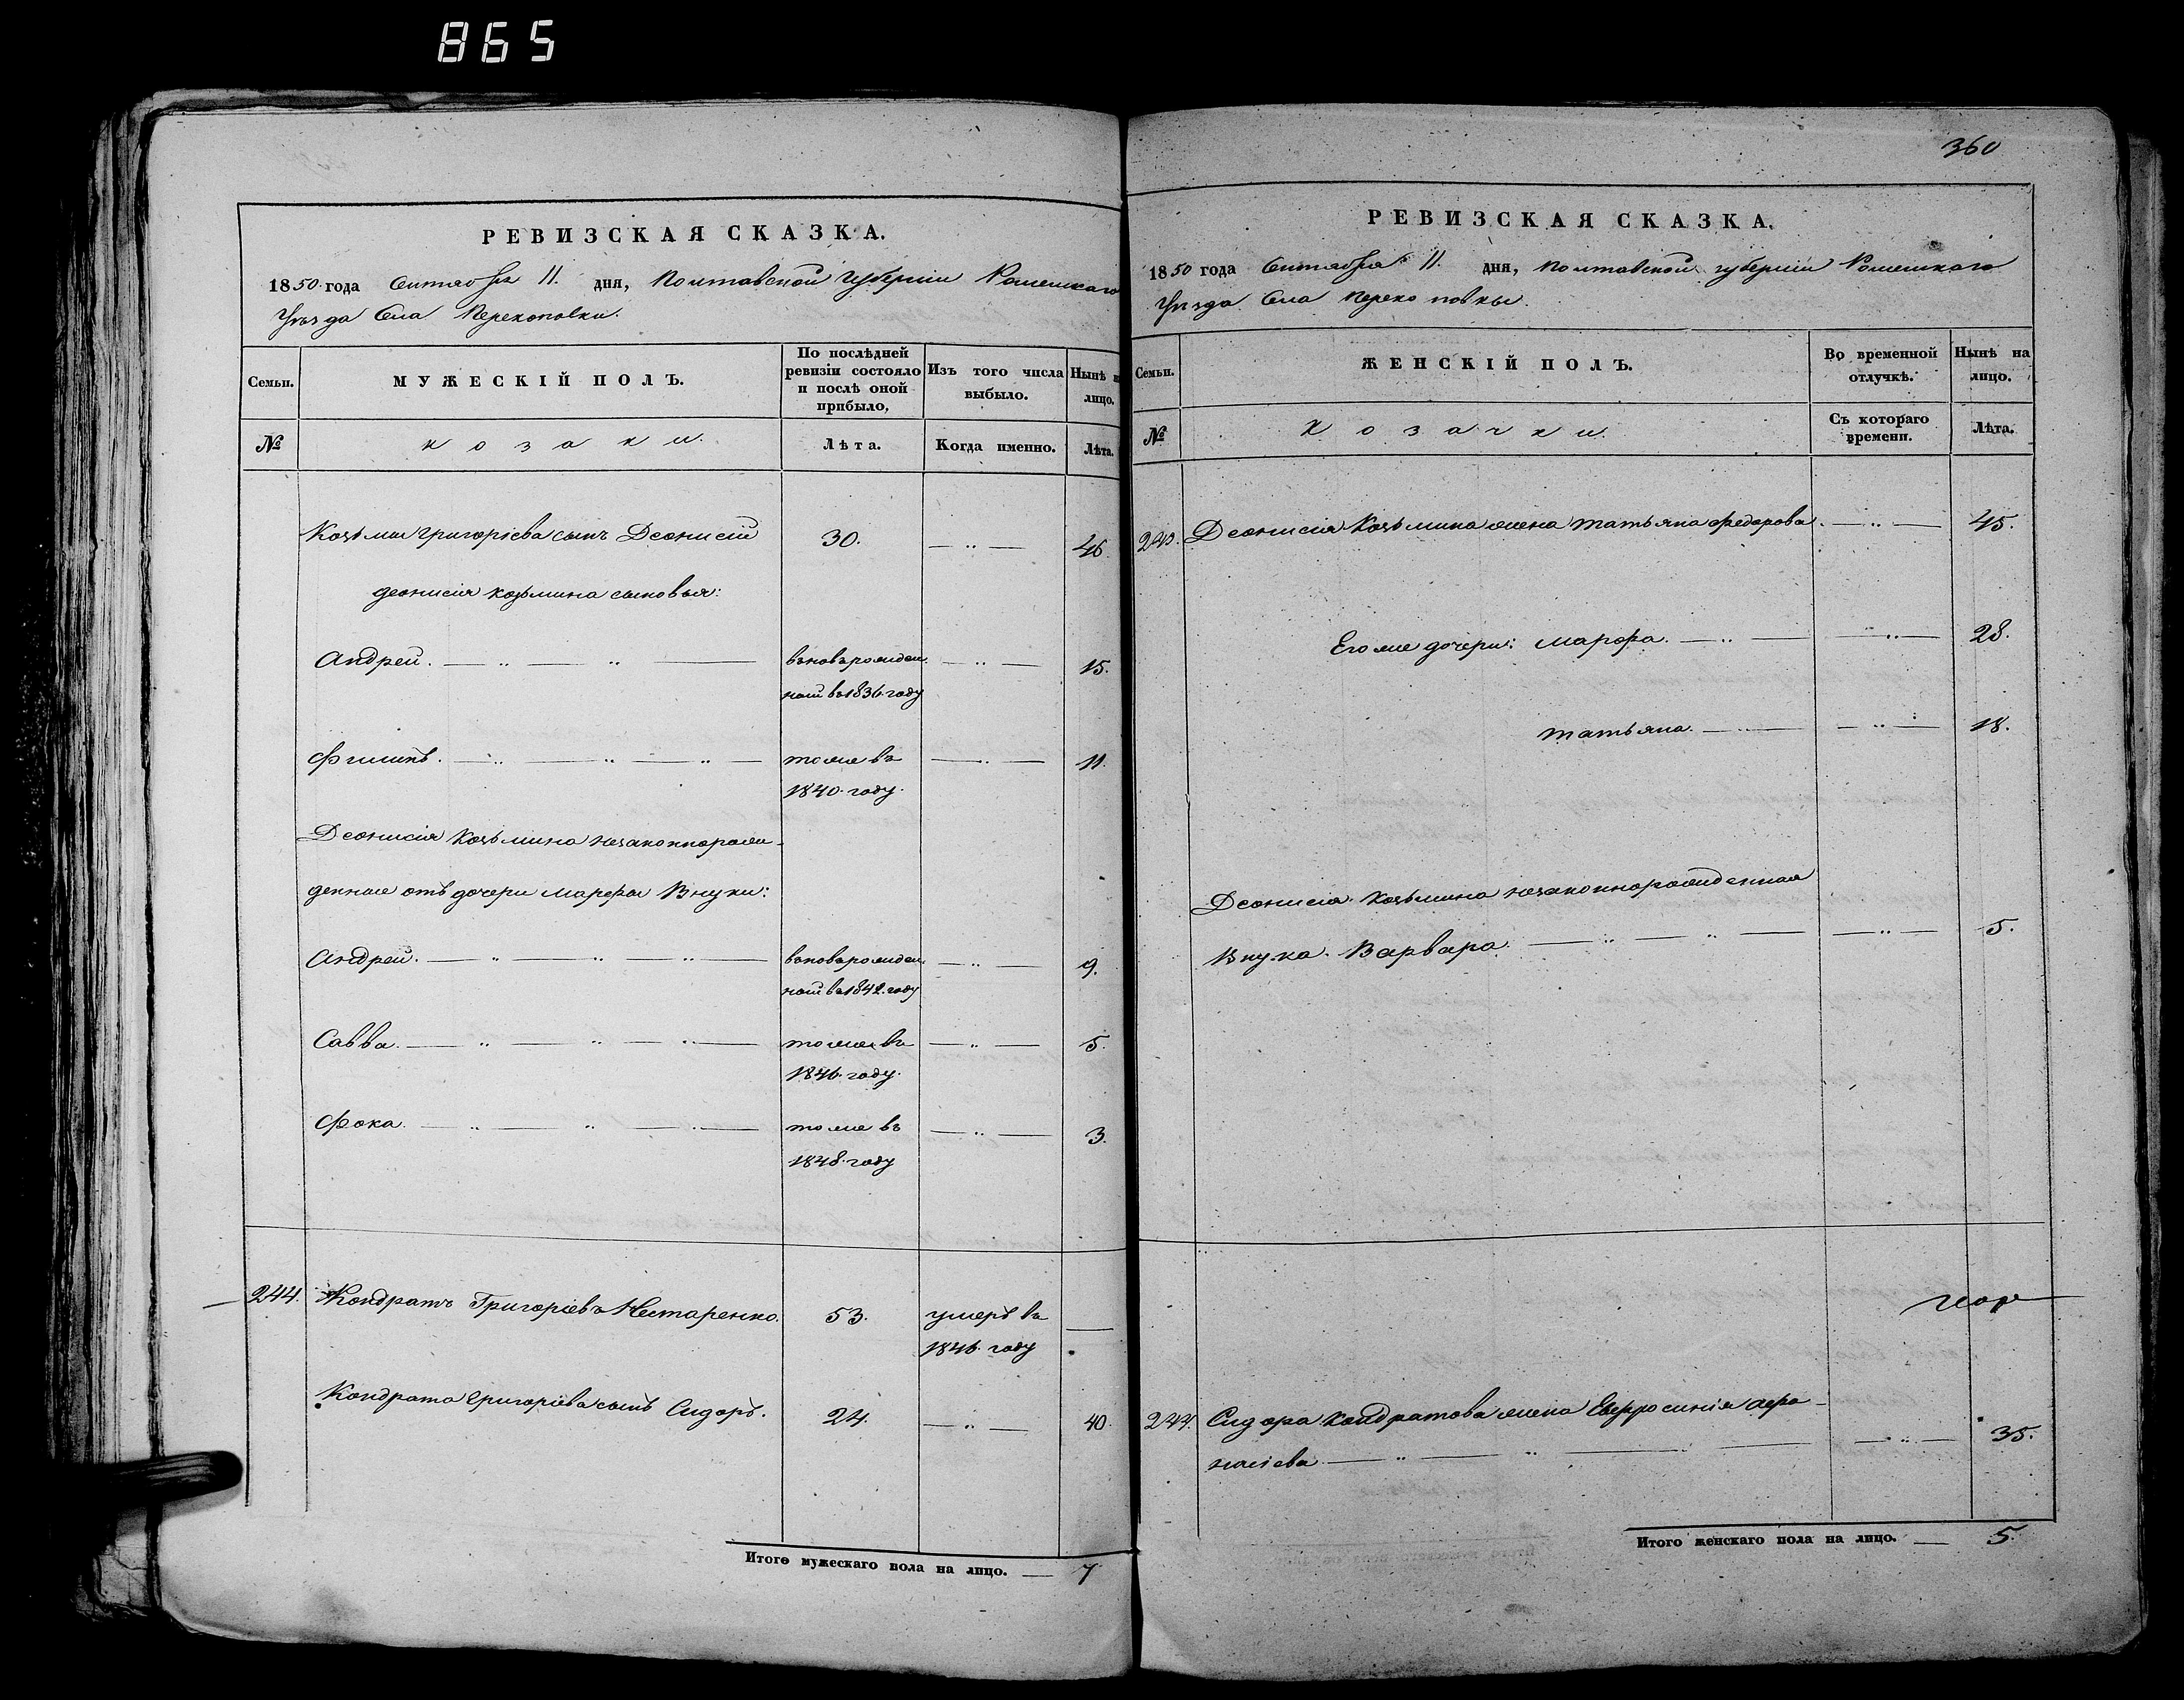 865
РЕВИЗСКАЯ СКАЗКА.
1850 года Сентября 11. дня, Полтавской Губерніи Роменскаго
Уѣзда Села Перекоповки.
Семьи.
МУЖЕСКІЙ ПОЛЪ.
По послѣдней ревизіи состояло и послѣ оной прибыло.
Изъ того числа выбыло.
Нынѣ н лицо.
№
козаки.
Лѣта.
Когда именно.
Лѣта.
Козьмы Григоріева сынъ Деонисій 30. — „ — 46.
Деонисія Козьмина сыновья:
Андрей. — „ — „ — вновьрожден. — „ — 15.
ный въ 1836. году
Филипъ. — „ — „ — „ — тоже въ — „ — 11.
1840. году.
Деонисія Козьмина незаконнорож-
денные отъ дочери Марфы Внуки:
Андрей. — „ — „ — „ — вновьрожден. — „ — 9.
ный въ 1842. году
Савва. — „ — „ — „ — тоже въ — „ — 5.
1846. году.
Фока. — „ — „ — „ — тоже въ — „ — 3.
1848. году
244. Кондратъ Григоріевъ Нестаренко. 53. умеръ въ —
1846. году
Кондрата Григоріева сынъ Сидоръ. 24. — „ — 40.
Итого мужескаго пола на лицо. — 7
360
РЕВИЗСКАЯ СКАЗКА.
1850 года Сентября 11. дня, Полтавской губерніи Роменскаго
Уѣзда Села Перекоповки.
Семьи.
ЖЕНСКІЙ ПОЛЪ.
Во временной отлучкѣ.
Нынѣ на лицо.
№
Козачки.
Съ котораго времени.
Лѣта.
243. Деонисія Козьмина жена Татьяна Федорова. — „ — 45.
Его же дочери: Марфа. — „ — — „ — 28.
Татьяна. — „ — — „ — 18.
Деонисія Козьмина незаконнорожденная
Внука. Варвара. — „ — „ — — „ — 5.
244. Сидора Кондратова жена Евфросинія Афа-
насіева — „ — „ — — „ — 35.
Итого женскаго пола на лицо. — 5.